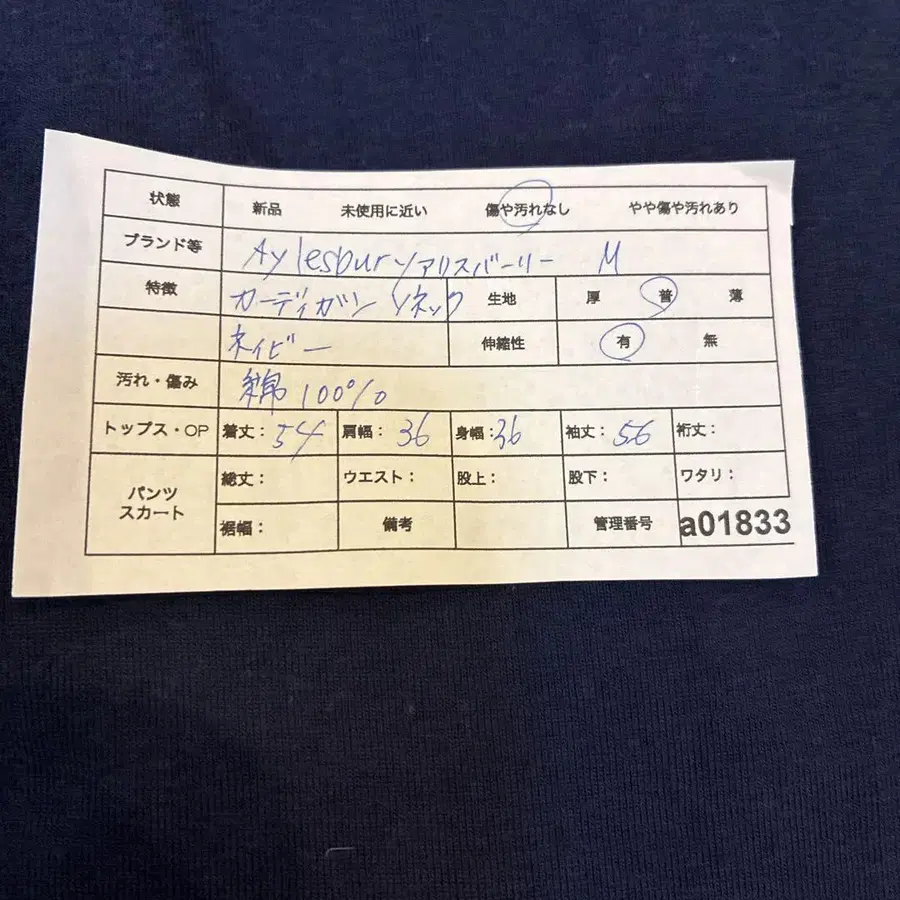 状態 新品 未使用に近い 傷や汚れなし やや傷や汚れあり
ブランド等 Aylesbury アリスバーリー M
特徴 カーディガン Vネック 生地 厚 普 薄
ネイビー 伸縮性 有 無
汚れ・傷み 綿 100%
トップス・OP 着丈: 54 肩幅: 36 身幅: 36 袖丈: 56 裄丈:
パンツ スカート 総丈: ウエスト: 股上: 股下: ワタリ:
裾幅: 備考 管理番号 a01833